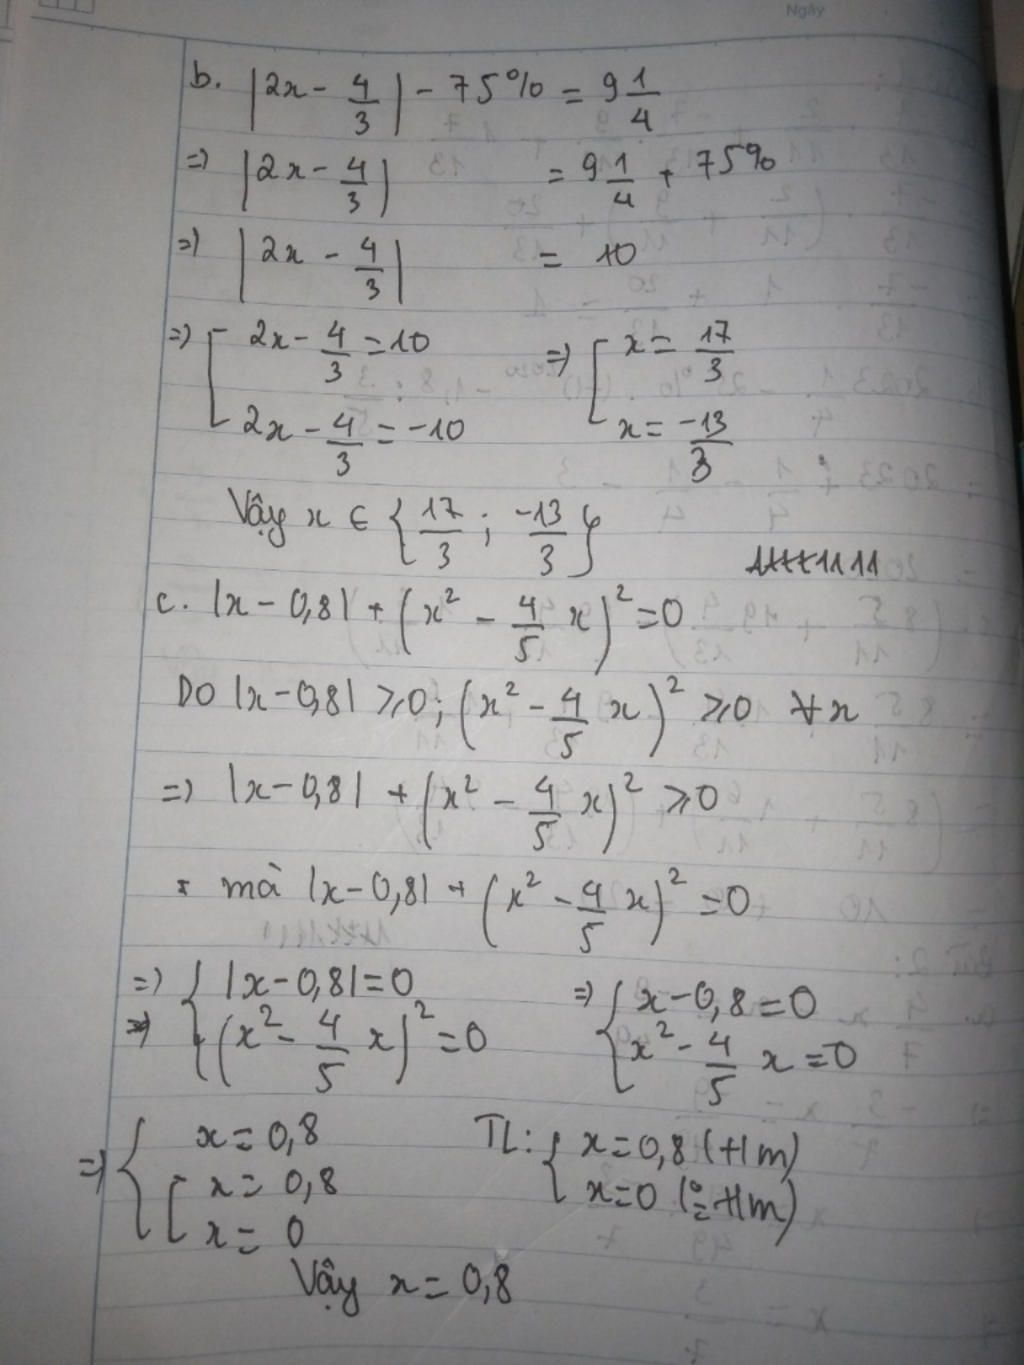 Ngày
b. |2x - 4/3| - 75% = 9 1/4
=> |2x - 4/3| = 9 1/4 + 75%
=> |2x - 4/3| = 10
=> [ 2x - 4/3 = 10 => [ x = 17/3
2x - 4/3 = -10 x = -13/3
Vậy x ∈ {17/3 ; -13/3}
c. |x - 0,8| + (x² - 4/5 x)² = 0
Do |x - 0,8| ⩾ 0; (x² - 4/5 x)² ⩾ 0 ∀x
=> |x - 0,8| + (x² - 4/5 x)² ⩾ 0
mà |x - 0,8| + (x² - 4/5 x)² = 0
=> { |x - 0,8| = 0 => { x - 0,8 = 0
(x² - 4/5 x)² = 0 x² - 4/5 x = 0
=> { x = 0,8 TL: { x = 0,8 (t/m)
[ x = 0,8 x = 0 (t/m)
x = 0
Vậy x = 0,8